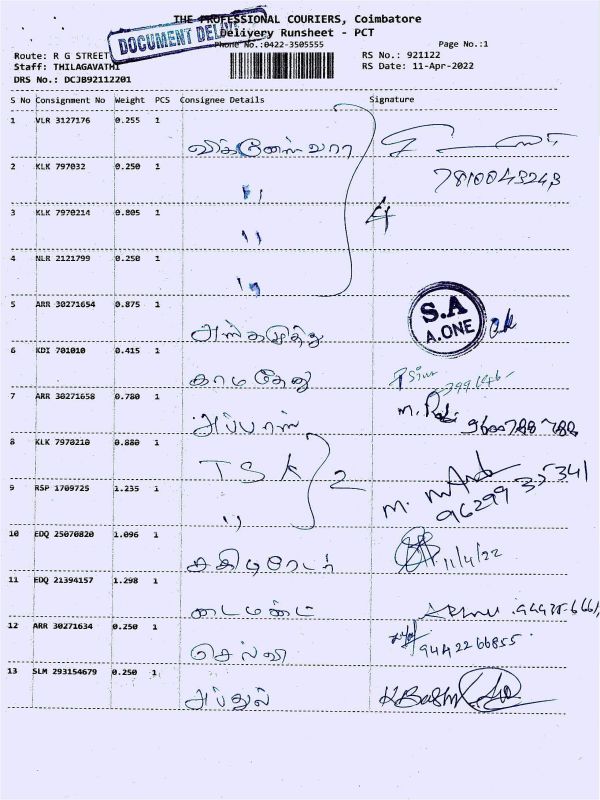 THE PROFESSIONAL COURIERS, Coimbatore
DOCUMENT
Delivery Runsheet - PCT
Phone No.:0422-3505555
Page No.:1
Route: R G STREET
RS No.: 921122
Staff: THILAGAVATHI
RS Date: 11-Apr-2022
DRS No.: DCJB92112201
S No Consignment No Weight PCS Consignee Details Signature
1 VLR 3127176 0.255 1
விக்னேஸ்வரா
2 KLK 797032 0.250 1
" 7810043243
3 KLK 7970214 0.805 1
" 4
4 NLR 2121799 0.250 1
"
5 ARR 30271654 0.875 1
S.A
A.ONE
6 KDI 701010 0.415 1
காமதேனு
7 ARR 30271658 0.780 1
அப்பாஸ்
8 KLK 7970210 0.880 1
TSK 2
9 RSP 1709725 1.235 1
" 96299 35341
10 EDQ 25070820 1.096 1
11/4/22
11 EDQ 21394157 1.298 1
டைமண்ட்
12 ARR 30271634 0.250 1
செல்வி 9442266855
13 SLM 293154679 0.250 1
அப்துல்